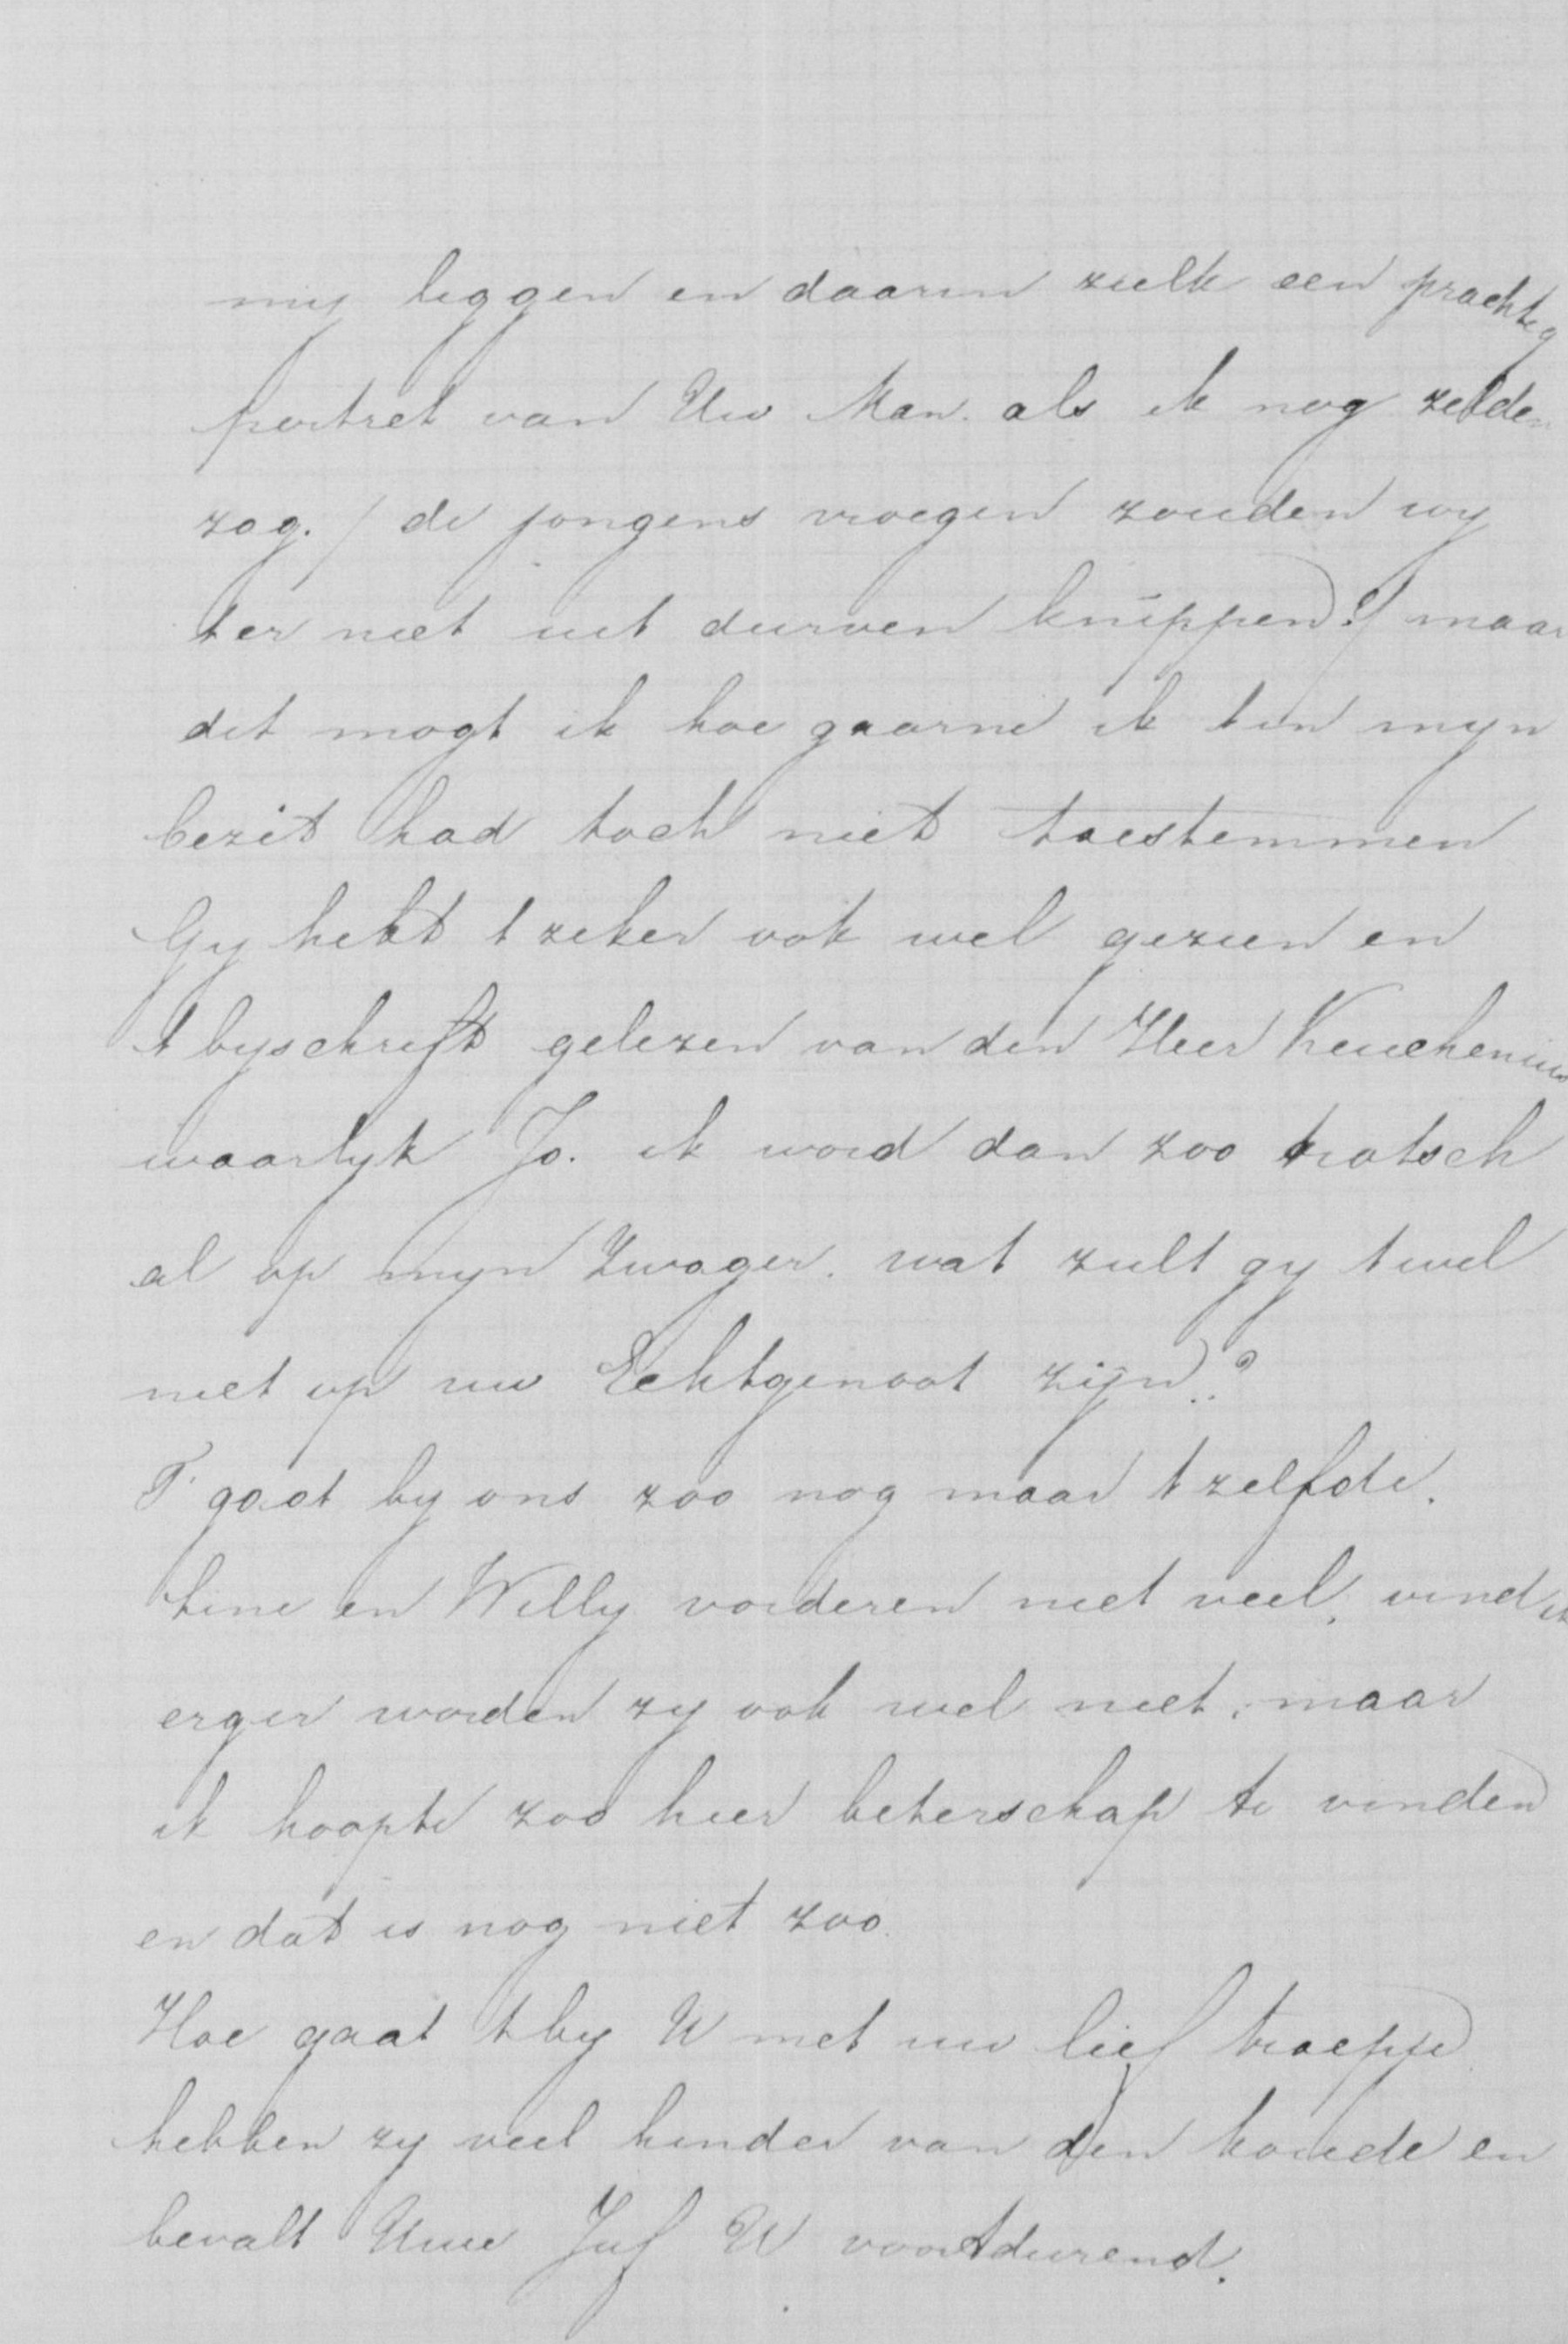 my liggen en daarin zulk een prachtig
portret van Uw Man. als ik nog zelden
zag. / de jongens vroegen zouden wy
t er niet uit durven knippen? / maar
dit mogt ik hoe gaarne ik t in myn
bezit had toch niet toestemmen
Gy hebt t zeker ook wel gezien en
t byschrift gelezen van den Heer Keuchenius
waarlyk Jo. ik word dan zoo trotsch
al op myn Zwager. wat zult gy t wel
niet op uw Echtgenoot zijn..?
T gaat by ons zoo nog maar t zelfde.
Line en Willy vorderen niet veel, vind ik
erger worden zy ook wel niet, maar
ik hoopte zoo hier beterschap te vinden
en dat is nog niet zoo.
Hoe gaat t by U met uw lief troepje
hebben zy veel hinder van den koude en
bevalt Uwe Juf U voortdurend.